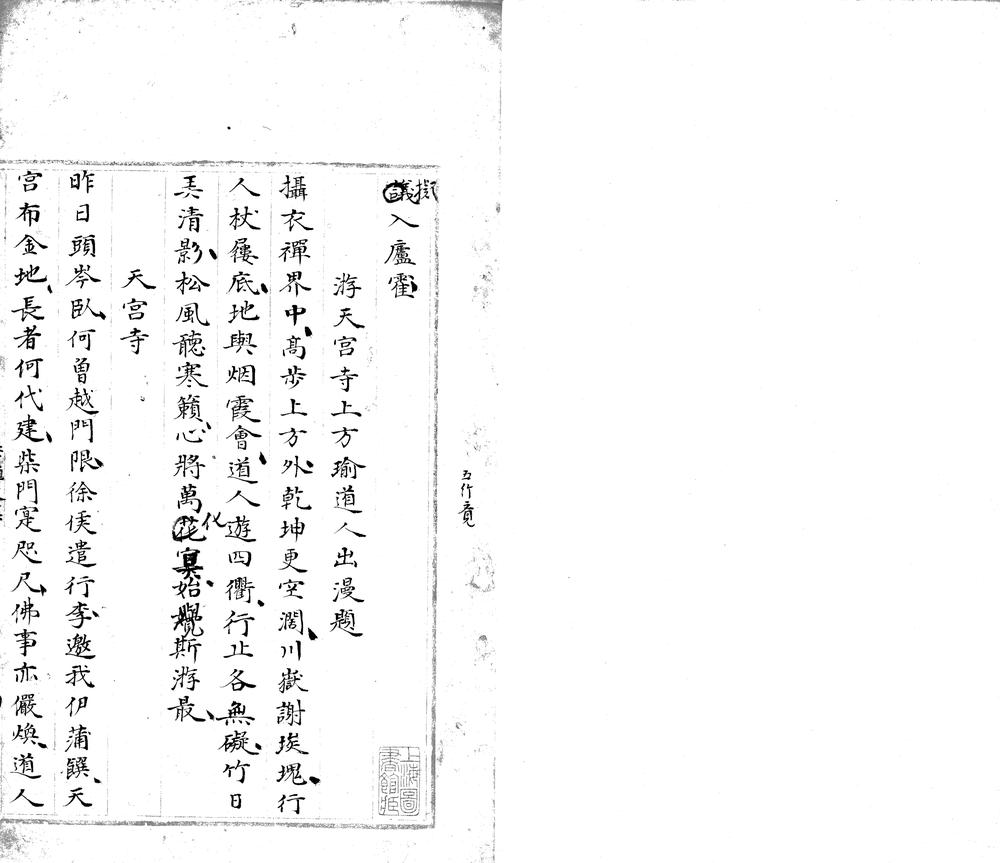 議擬入廬霍
游天宮寺上方瑜道人出漫題
攝衣禪界中高步上方外乾坤更空濶川嶽謝埃堁行
人杖屨底地與烟霞會道人遊四衢行止各無礙竹日
美清影松風聽寒籟心將萬花化寞始覺斯游最
天宮寺
昨日頭岑臥何曾越門限徐侯遣行李邀我伊蒲饌天
宮布金地長者何代建柴門寔咫尺佛事亦嚴煥道人
上海圖書館藏